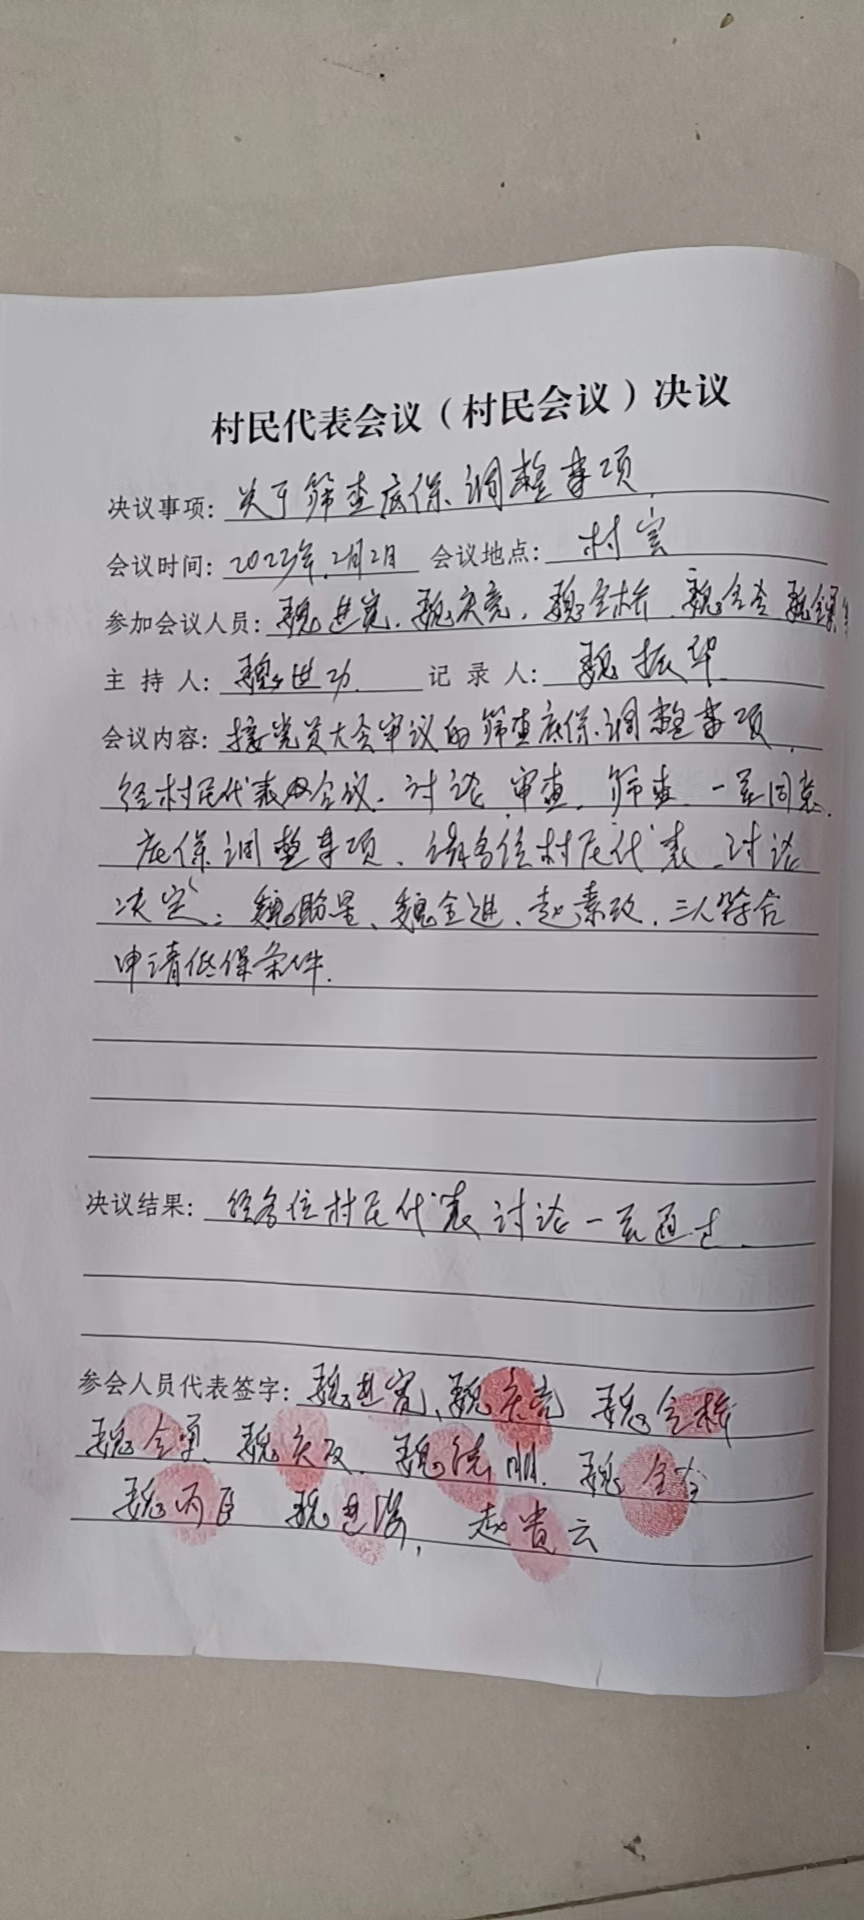 村民代表会议（村民会议）决议
决议事项：关于筛查底保调整事项
会议时间：2023年2月2日 会议地点：村室
参加会议人员：魏进宽、魏庆亮、魏全桥、魏全奇 魏
主持人：魏进功 记录人：魏振华
会议内容：接党员大会审议的筛查底保调整事项，
经村民代表会议、讨论、审查、筛查、一至同意
底保调整事项、请各位村民代表讨论
决定：魏盼星、魏全进、赵素改、三人符合
申请低保条件.
决议结果：经各位村民代表讨论一至通过
参会人员代表签字：魏进宽、魏庆亮 魏全桥
魏全 魏庆 魏德明. 魏全奇
魏丙臣 魏进 赵贵云